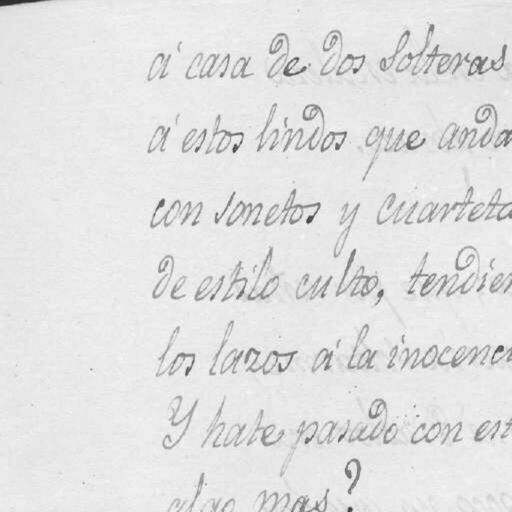 á casa de dos Solteras
á estos lindos que anda
con sonetos y cuarteta
de estilo culto, tendien
los lazos á la inocenci
Y hate pasado con est
algo mas?